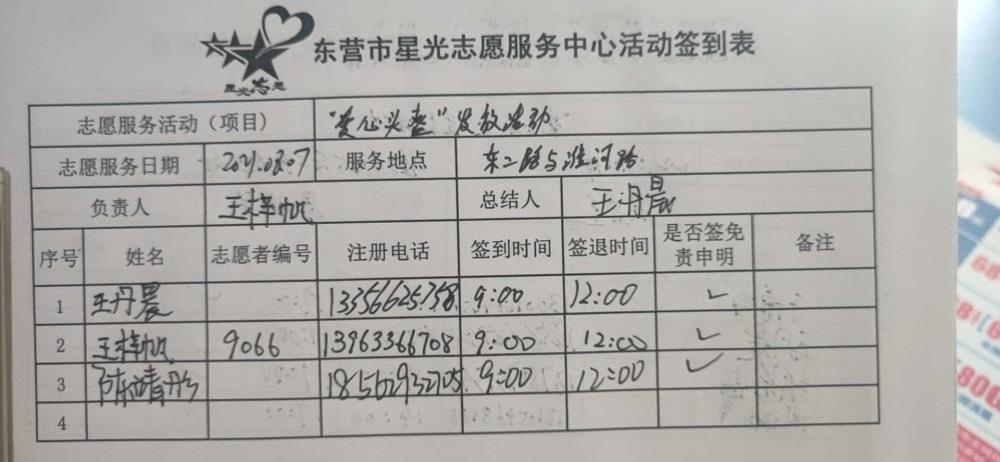 星光志愿
东营市星光志愿服务中心活动签到表
志愿服务活动（项目） "爱心头盔"发放活动
志愿服务日期 2021.03.07 服务地点 东二路与淮河路
负责人 王梓帆 总结人 王丹晨
序号 姓名 志愿者编号 注册电话 签到时间 签退时间 是否签免责申明 备注
1 王丹晨 13356625758 9:00 12:00 ✓
2 王梓帆 9066 13963366708 9:00 12:00 ✓
3 陈靖彤 18562932705 9:00 12:00 ✓
4